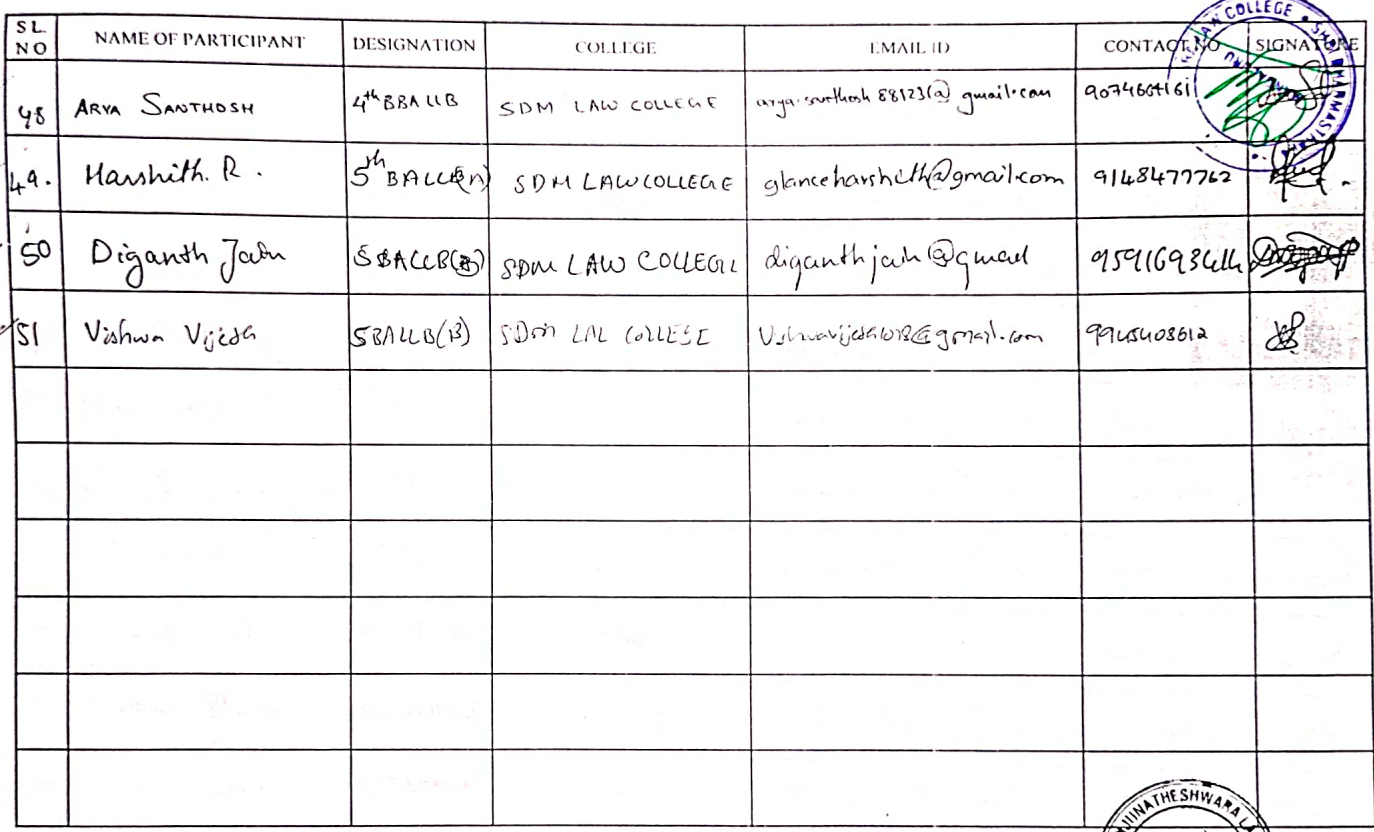 SL. NO NAME OF PARTICIPANT DESIGNATION COLLEGE EMAIL ID CONTACT NO SIGNATURE
48 ARYA SANTHOSH 4th BBA LLB SDM LAW COLLEGE arya.santhosh88123@gmail.com 9074664161
49. Harshith. R. 5th BALLB SDM LAW COLLEGE glanceharshith@gmail.com 9148477762
50 Diganth Jain 5BALLB(B) SDM LAW COLLEGE diganthjain@gmail
51 Vishwa Vijesh 5BALLB(B) SDM LAL COLLEGE 9945403612
LAW COLLEGE • SHRI DHARMASTHALA
MANGALURU